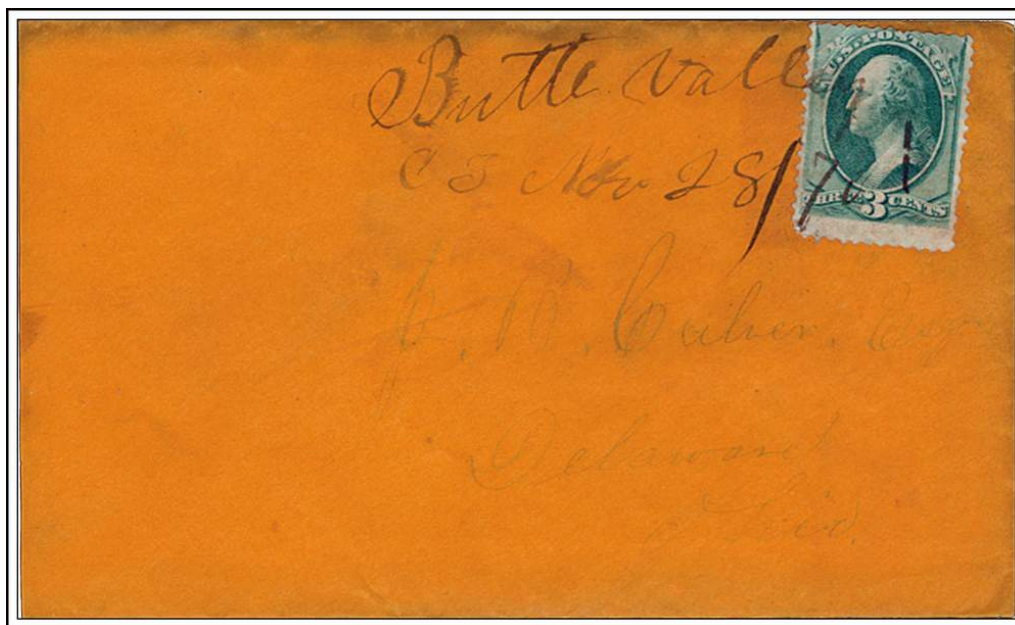 Butte Valley
Nov 28/71
U.S. POSTAGE
THREE 3 CENTS
Esqr
Delaware
Ohio.